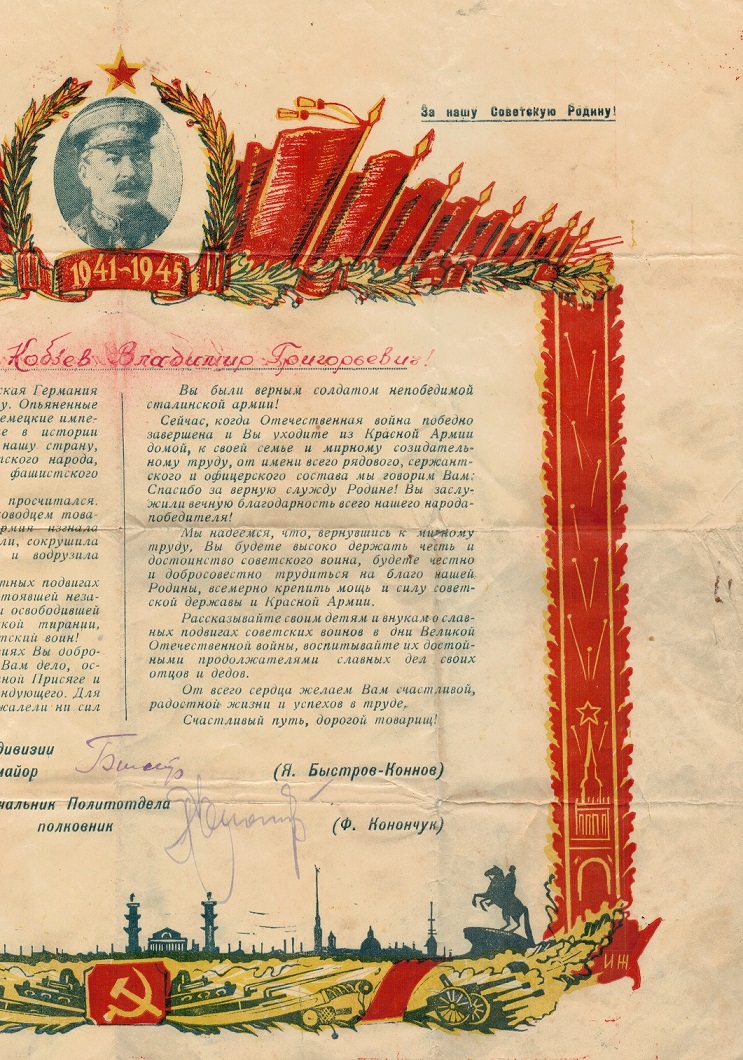 За нашу Советскую Родину!
1941–1945
Кобзев Владимир Григорьевич!
ская Германия
у. Опьяненные
емецкие импе-
е в истории
нашу страну,
тского народа,
фашистского
просчитался.
ководцем това-
рмия изгнала
ли, сокрушила
и водрузила
тных подвигах
тоявшей неза-
и освободившей
ской тирании,
тский воин!
виях Вы добро-
Вам дело, ос-
ной Присяге и
ндующего. Для
жалели ни сил
Вы были верным солдатом непобедимой
сталинской армии!
Сейчас, когда Отечественная война победно
завершена и Вы уходите из Красной Армии
домой, к своей семье и мирному созидатель-
ному труду, от имени всего рядового, сержант-
ского и офицерского состава мы говорим Вам:
Спасибо за верную службу Родине! Вы заслу-
жили вечную благодарность всего нашего народа-
победителя!
Мы надеемся, что, вернувшись к мирному
труду, Вы будете высоко держать честь и
достоинство советского воина, будете честно
и добросовестно трудиться на благо нашей
Родины, всемерно крепить мощь и силу совет-
ской державы и Красной Армии.
Рассказывайте своим детям и внукам о слав-
ных подвигах советских воинов в дни Великой
Отечественной войны, воспитывайте их достой-
ными продолжателями славных дел своих
отцов и дедов.
От всего сердца желаем Вам счастливой,
радостной жизни и успехов в труде.
Счастливый путь, дорогой товарищ!
дивизии
майор (Я. Быстров-Коннов)
чальник Политотдела
полковник (Ф. Конончук)
ИЖ